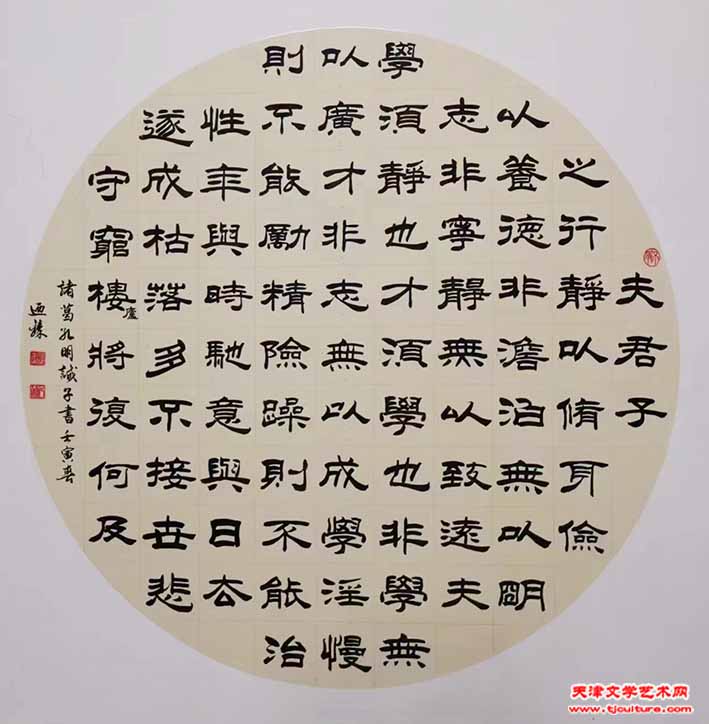 夫君子
之行靜以脩身儉
以養德非澹泊無以明
志非寧靜無以致遠夫
學須靜也才須學也非學無
以廣才非志無以成學淫慢
則不能勵精險躁則不能治
性年與時馳意與日去
遂成枯落多不接世悲
守窮樓廬將復何及
諸葛孔明誡子書壬寅春
天津文学艺术网
www.tjculture.com